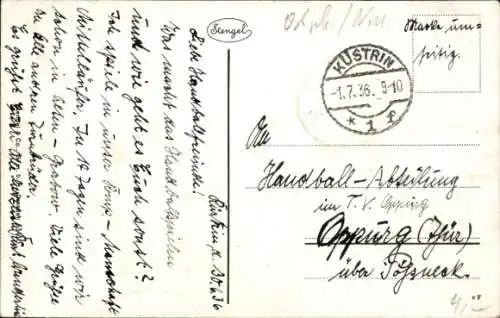 Stengel
Ostpb./Nm
Marke um=
seitig.
KÜSTRIN
-1.7.36. 9-10
* 1 f
Küstrin, d. 30.6.36
Liebe Handballfreunde!
Was macht das Handballspielen
und wie geht es Euch sonst?
Ich spiele in unser Komp-Mannschaft
Mittelläufer. In 14 Tagen sind wir
schon in Alten-Grabow. Viele Grüße
an alle anderen Turnbrüder.
Es grüßt Euch Alle
An
Handball-Abteilung
im T. V. Oppurg
Oppurg (Thür)
über Pößneck.